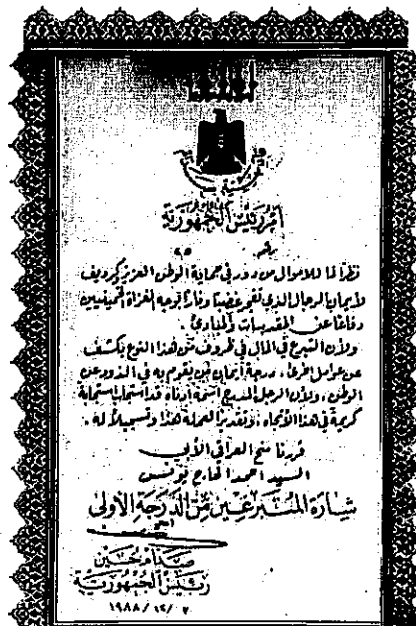 أمر رئيس الجمهورية
نظراً لما للاموال من دور في حماية الوطن العزيز كرديف
لإيمان الرجال الذي تفجر غضباً وناراً بوجه الغزاة الخمينيين
دفاعاً عن المقدسات والمبادئ.
ولأن التبرع في المال في ظروف من هذا النوع يكشف
عن عوامل اخرى، ودرجة إيمان من يقوم به في الذود عن
الوطن، ولأن الرجل المدرج اسمه ادناه قد استجاب استجابة
كريمة في هذا الاتجاه، وتقديراً لعمله هذا وتسجيلاً له.
قررنا منح العراقي الأبي
السيد احمد الحاج يونس
شارة المتبرعين من الدرجة الأولى
صدام حسين
رئيس الجمهورية
١٩٨٨/١٢/٢